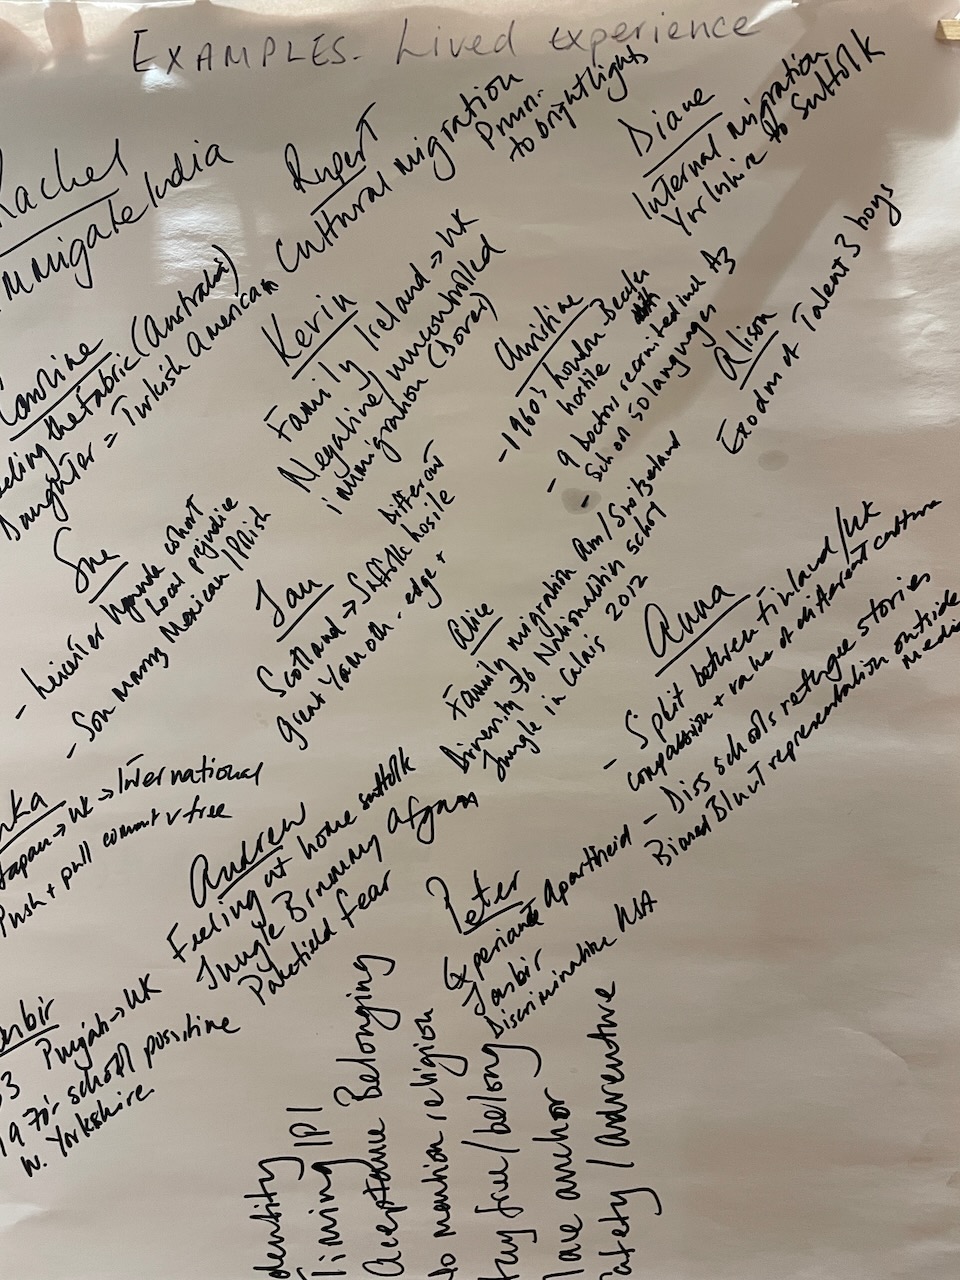 EXAMPLES. Lived experience
Rachel
immigrate India
Rupert
Cultural migration
to bright lights
Diane
Internal migration
Yorkshire to Suffolk
Caroline
the fabric (Australia)
Daughter = Turkish American
Kevin
Family Ireland → UK
Negative/uncontrolled
immigration (Dover)
Christine
- 1960's London
hostile
- 9 doctors recruited
- School 50 languages
Alison
Exodus of Talent 3 boys
Sue
- Leicester cohort
Local prejudice
- Son marry Mexican/Polish
Ian
Different
Scotland → Suffolk hostile
Great Yarmouth - edge +
Family migration Switzerland
Diversity 36 Nationalities school
Jungle in Calais 2012
Anna
- Split between Finland/UK
compassion + value of different culture
- Diss schools refugee stories
Biased Blunt representation outside
media
Japan → UK → International
Push + pull commit v free
Andrew
Feeling at home Suffolk
Jungle
Pakefield fear
Peter
Experience Apartheid
Jasbir
Discrimination USA
Punjab → UK
school positive
W. Yorkshire.
Identity
Timing
Acceptance Belonging
No mention religion
Stay free/belong
anchor
Safety/adventure